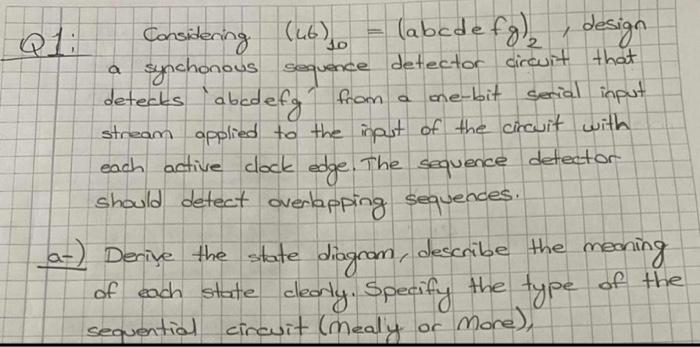 Q1: Considering (46)10 = (abcdefg)2 , design
a synchonous sequence detector circuit that
detects 'abcdefg' from a one-bit serial input
stream applied to the input of the circuit with
each active clock edge. The sequence detector
should detect overlapping sequences.
a-) Derive the state diagram, describe the meaning
of each state clearly. Specify the type of the
sequential circuit (mealy or More),